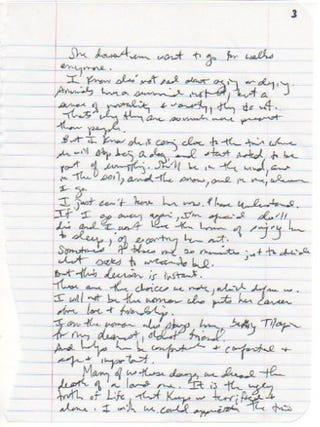 3
She doesn't even want to go for walks
anymore.
I know she's not sad about aging or dying.
Animals have a survival instinct, but a
sense of mortality & vanity, they do not.
That's why they are so much more present
than people.
But I know she is coming close to the time where
she will stop being a dog and start instead to be
part of everything. She'll be in the wind, and
in the soil, and the snow, and in me, wherever
I go.
I just can't leave her now. Please understand.
If I go away again, I'm afraid she'll
die and I won't have the honor of singing her
to sleep, of escorting her out.
Sometimes it takes me 20 minutes just to decide
what socks to wear to bed.
But this decision is instant.
These are the choices we make, which define us.
I will not be the woman who puts her career
above love & friendship.
I am the woman who stays home, baking Tilapia
for my dearest, oldest friend.
And helps her be comfortable & comforted &
safe & important.
Many of us these days, we dread the
death of a loved one. It is the ugly
truth of Life that keeps us terrified &
alone. I wish we could appreciate the time